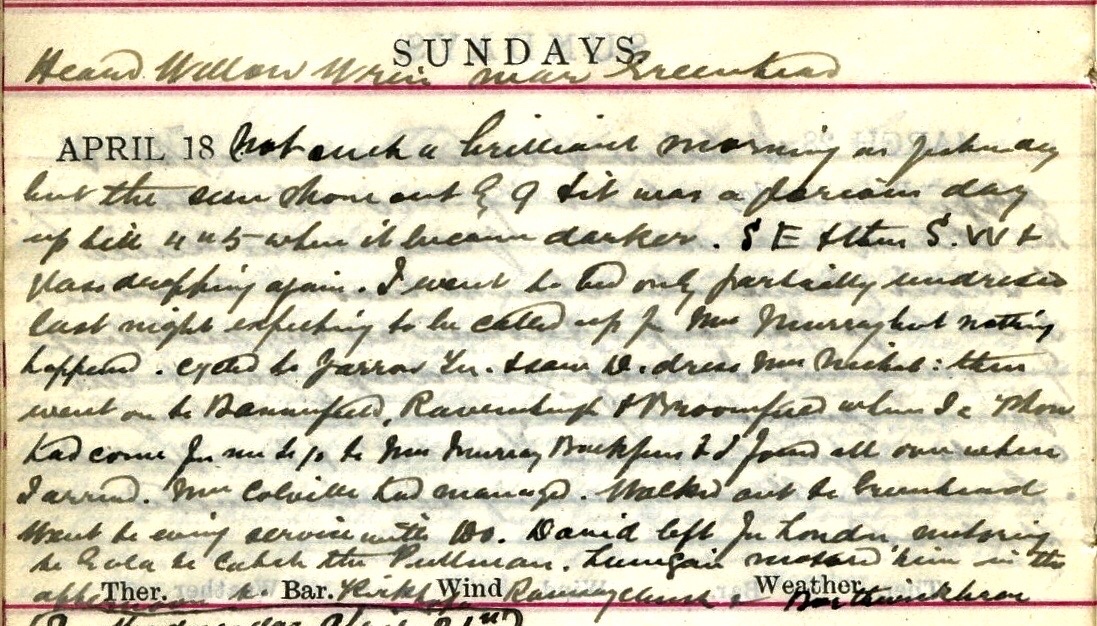 SUNDAYS.
Heard Willow Wren near Greenhead
APRIL 18 Not such a brilliant morning as yesterday
but the sun shone out by 9 & it was a glorious day
up till 4.45 when it became darker. S E & then S.W &
glass dropping again. I went to bed only partially undressed
last night expecting to be called up for Mrs Murray but nothing
happened. Cycled to Yarrow & saw D. dress Mrs : then
went on to & Broomfield when a 'phone
had come for me to go to Mrs Murray & I found all over when
I arrived. Mrs Colville had managed. Walked out to Greenhead
Went to evening service with Do. David left for London motoring
to Gala to catch the Pullman. motored him in the
afternoon to &
Ther. Bar. Wind Weather.